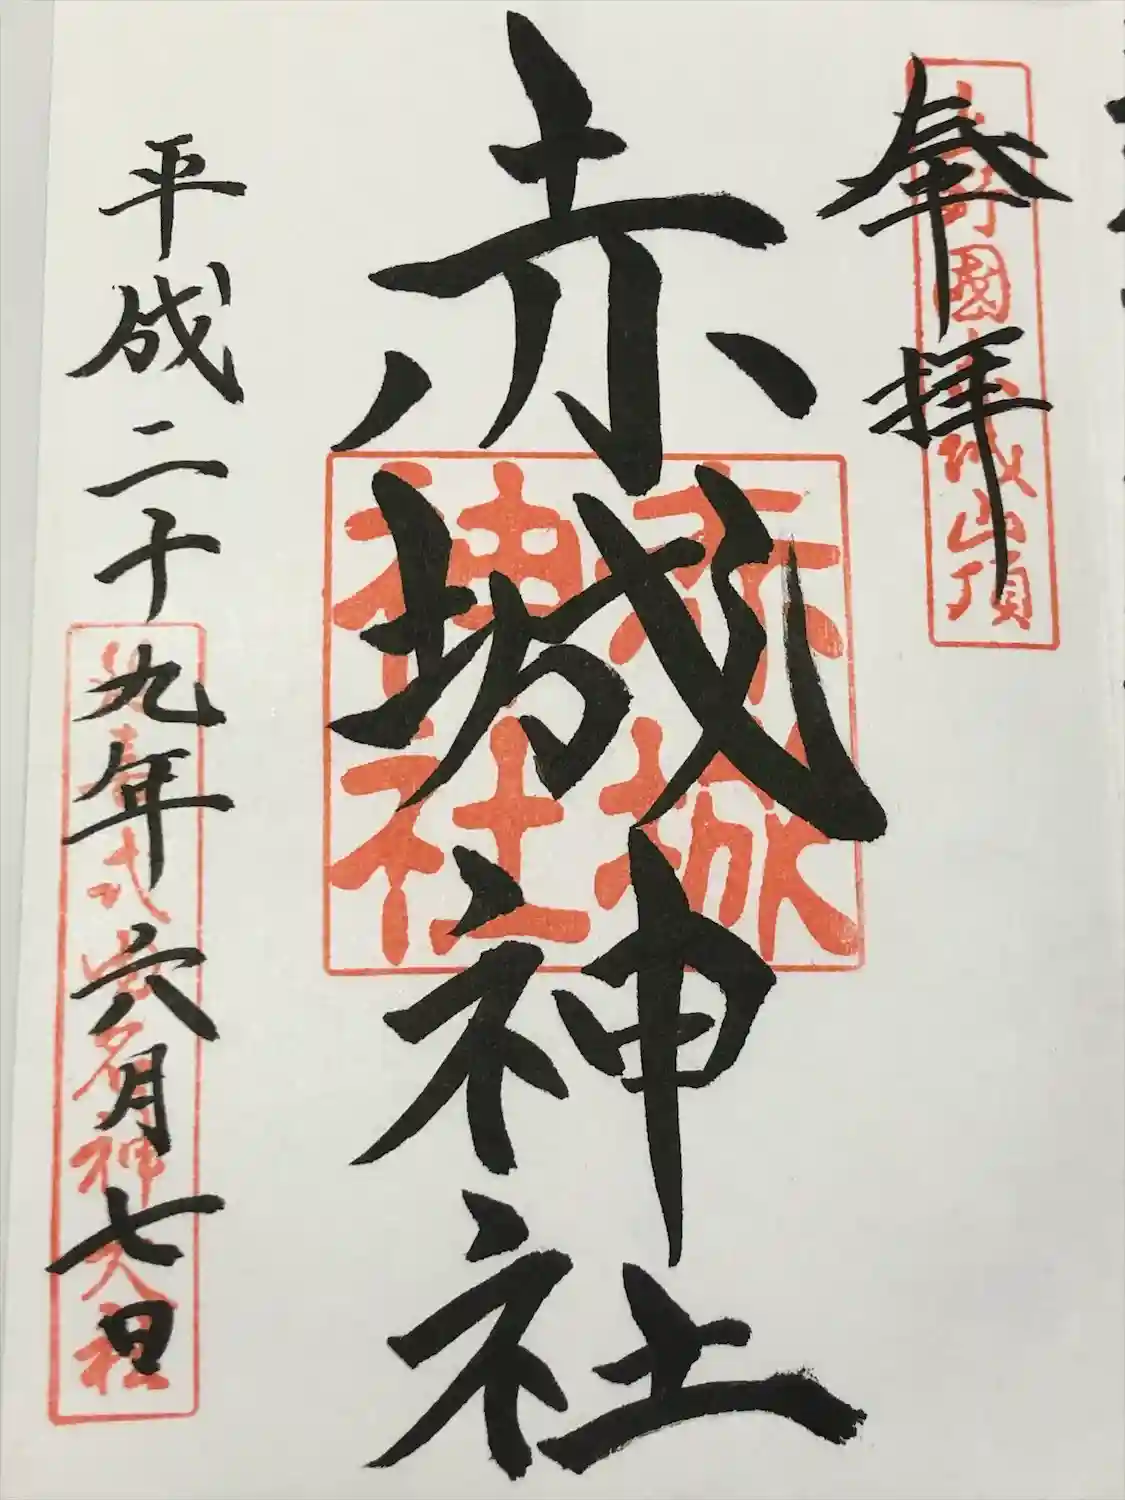 奉拝
上野國赤城山頂
赤城神社
赤城
神社
平成二十九年六月七日
延喜式内名神大社